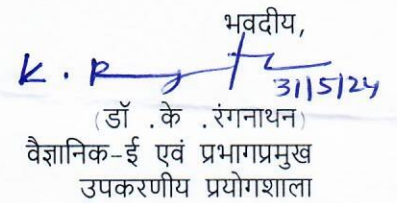 भवदीय,
K. R
31/5/24
(डॉ .के .रंगनाथन)
वैज्ञानिक-ई एवं प्रभागप्रमुख
उपकरणीय प्रयोगशाला